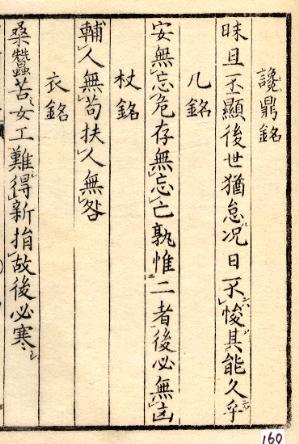 讒鼎銘
昧旦丕顯後世猶怠况日不悛其能久乎
几銘
安無忘危存無忘亡孰惟二者後必無凶
杖銘
輔人無苟扶人無咎
衣銘
桑蠶苦女工難得新捐故後必寒
160